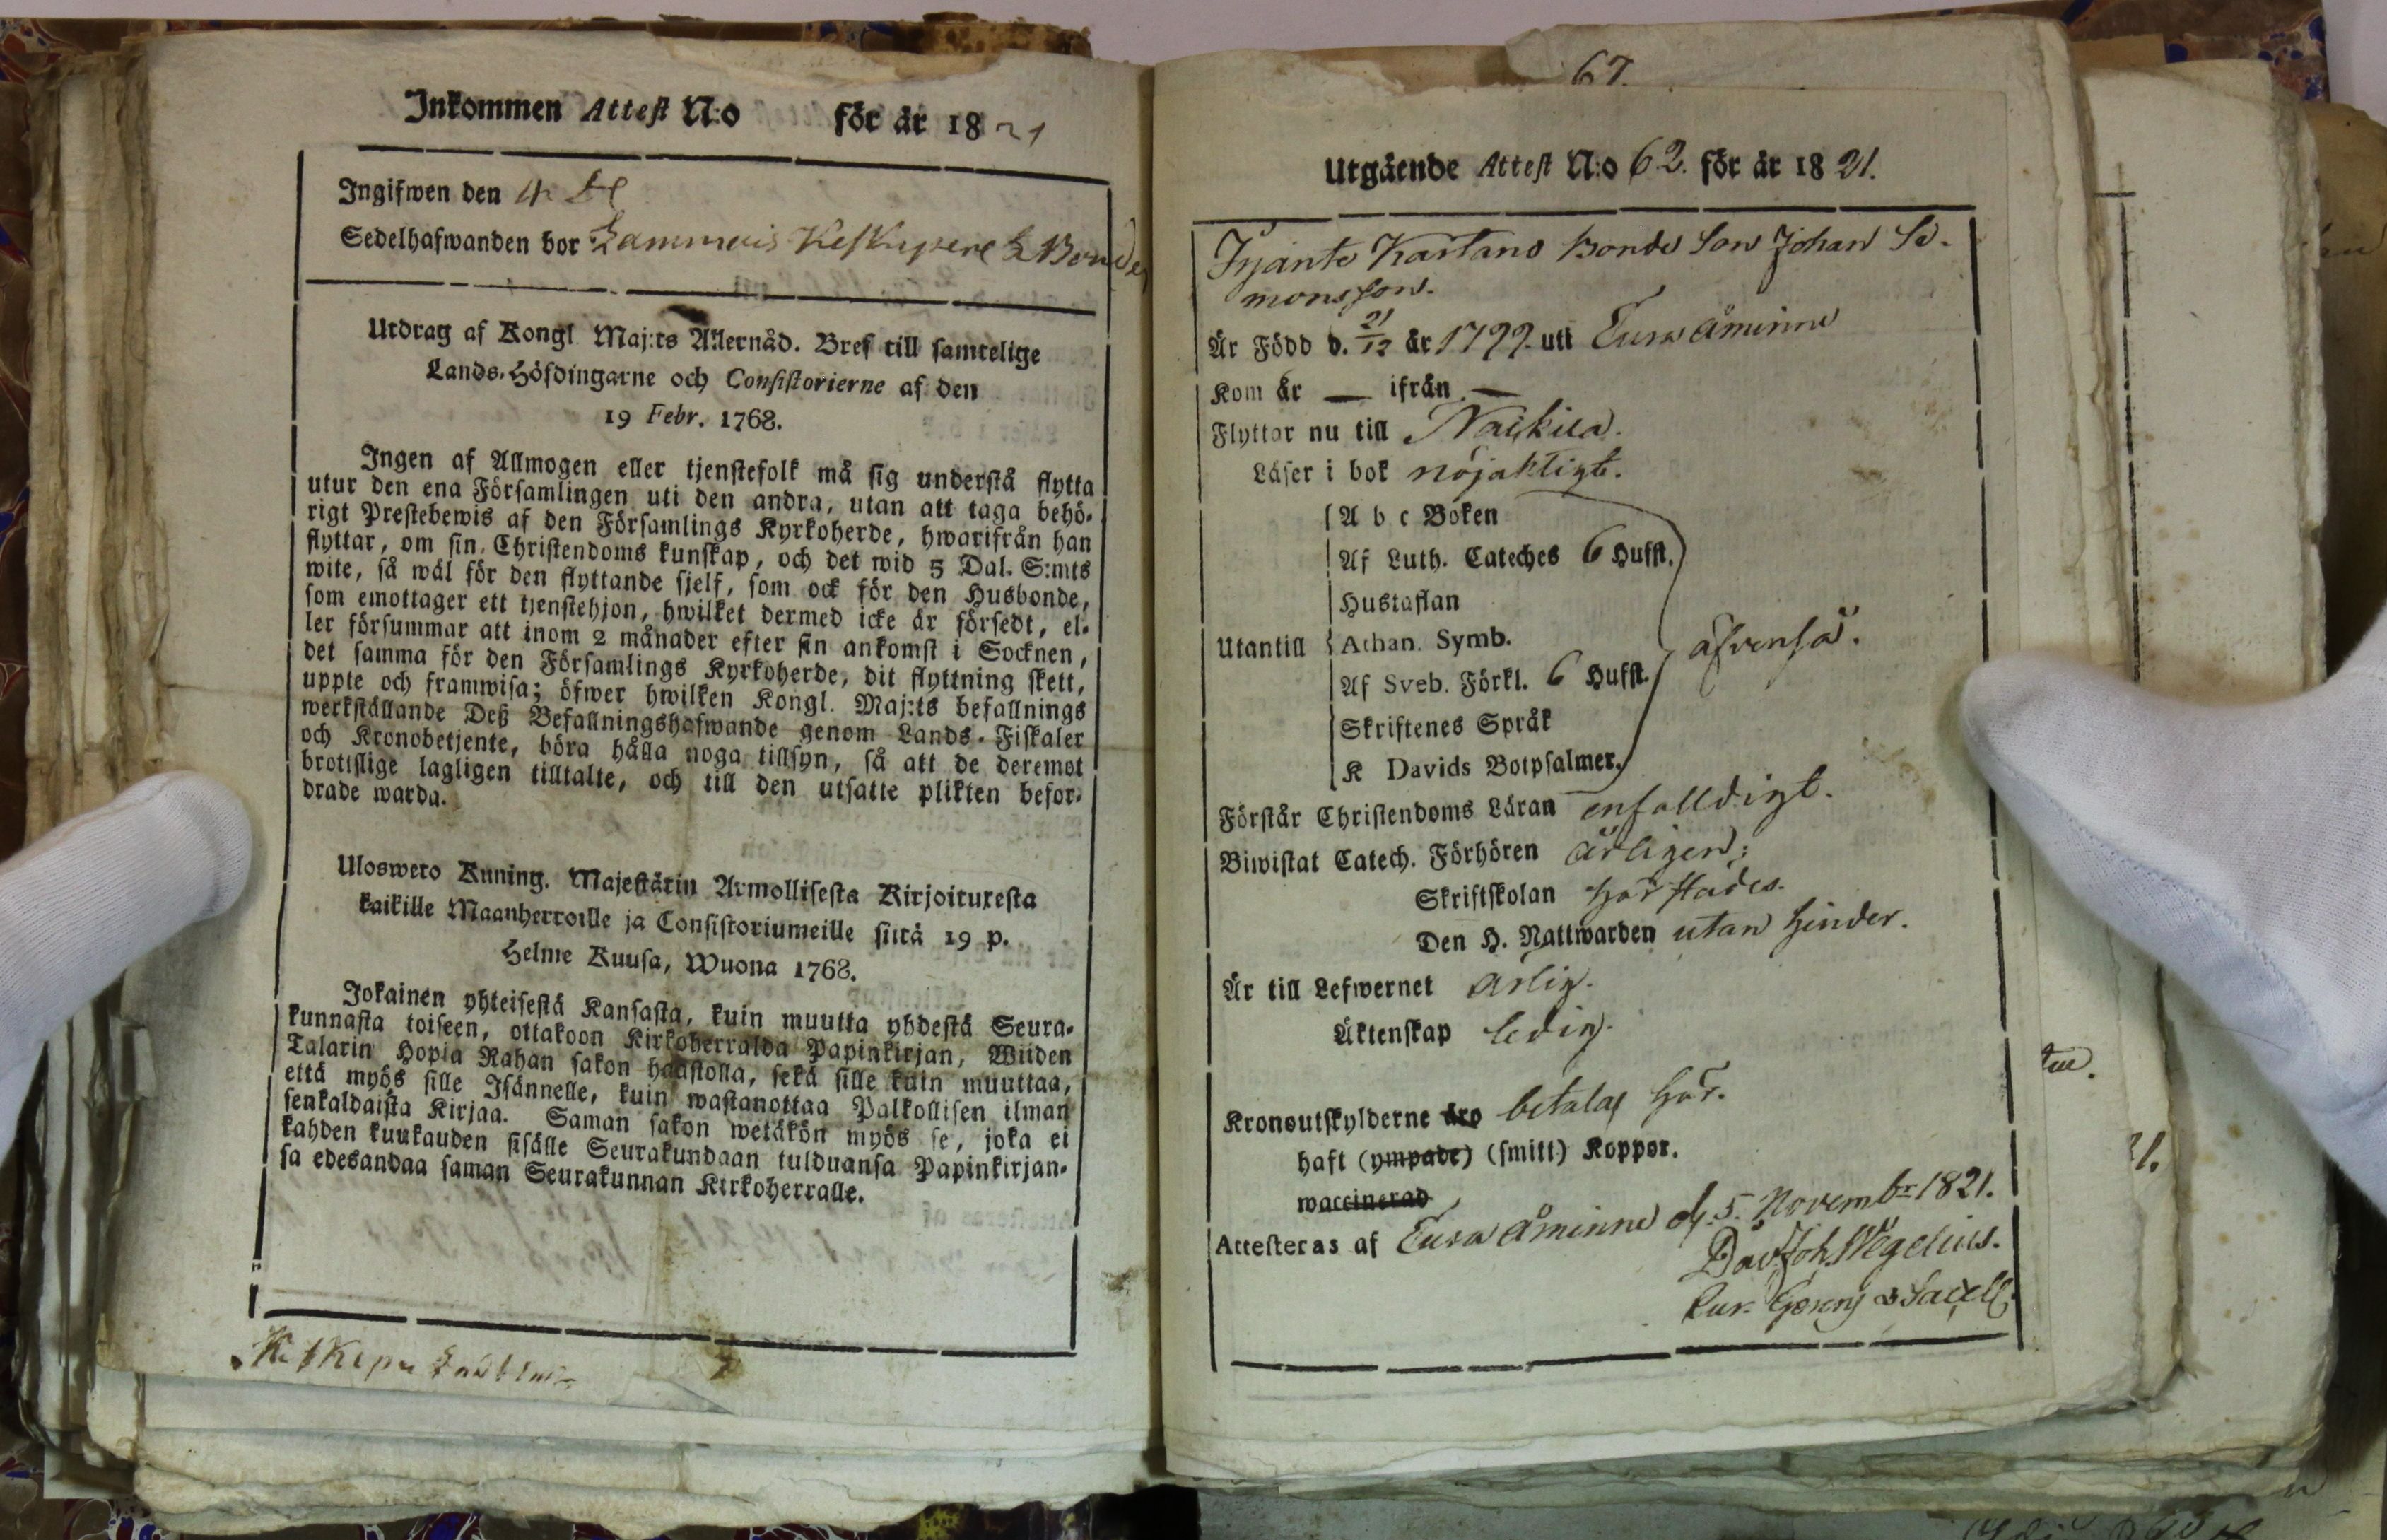 Inkommen Attest N:o för år 1821
Ingifwen den 4
Sedelhafwanden bor Lammais Keskipere Bonde
Utdrag af Kongl Maj:ts Allernåd. Bref till samtelige
Lands-Höfdingarne och Consistorierne af den
19 Febr. 1768.
Ingen af Allmogen eller tjenstefolk må sig understå flytta
utur den ena Församlingen uti den andra, utan att taga behö-
rigt Prestebewis af den Församlings Kyrkoherde, hwarifrån han
flyttar, om sin Christendoms kunskap, och det wid 5 Dal. S:mts
wite, så wäl för den flyttande sjelf, som ock för den Husbonde,
som emottager ett tjenstehjon, hwilket dermed icke är försedt, el-
ler försummar att inom 2 månader efter sin ankomst i Socknen,
det samma för den Församlings Kyrkoherde, dit flyttning skett,
uppte och framwisa; öfwer hwilken Kongl. Maj:ts befallnings
werkställande Deß Befallningshafwande genom Lands-Fiskaler
och Kronobetjente, böra hålla noga tillsyn, så att de deremot
brottslige lagligen tilltalte, och till den utsatte plikten befor-
drade warda.
Ulosweto Kuning. Majestätin Armollisesta Kirjoituxesta
kaikille Maanherroille ja Consistoriumeille siitä 19 p.
Helme Kuusa, Wuona 1768.
Jokainen yhteisestä Kansasta, kuin muutta yhdestä Seura-
kunnasta toiseen, ottakoon Kirkoherralda Papinkirjan, Wiiden
Talarin Hopia Rahan sakon haastolla, sekä sille kuin muuttaa,
että myös sille Isännelle, kuin wastanottaa Palkollisen ilman
senkaldaista Kirjaa. Saman sakon wetäkön myös se, joka ei
kahden kuukauden sisälle Seurakundaan tulduansa Papinkirjan-
sa edesandaa saman Seurakunnan Kirkoherralle.
67.
Utgående Attest N:o 62. för år 1821.
Kartano Bonde Son Johan Si-
monsson.
Är Född d. 21/12 år 1799. uti Eura åminne
Kom år — ifrån —
Flyttar nu till Nackila.
Läser i bok nöjaktigt.
A b c Boken
Af Luth. Cateches 6 Hufst.
Hustaflan
Utantill Athan. Symb. äfvenså.
Af Sveb. Förkl. 6 Hufst.
Skriftenes Språk
K Davids Botpsalmer.
Förstår Christendoms Läran enfalldigt.
Biwistat Catech. Förhören årligen;
Skriftskolan härstädes.
Den H. Nattwarden utan hinder.
Är till Lefwernet ärlig.
Äktenskap ledig.
Kronoutskylderne äro betalas här.
haft (ympade) (smitt) Koppor.
waccinerad
Attesteras af Eura åminne d. 5. Novembr 1821.
Dav. Joh. Wegelius.